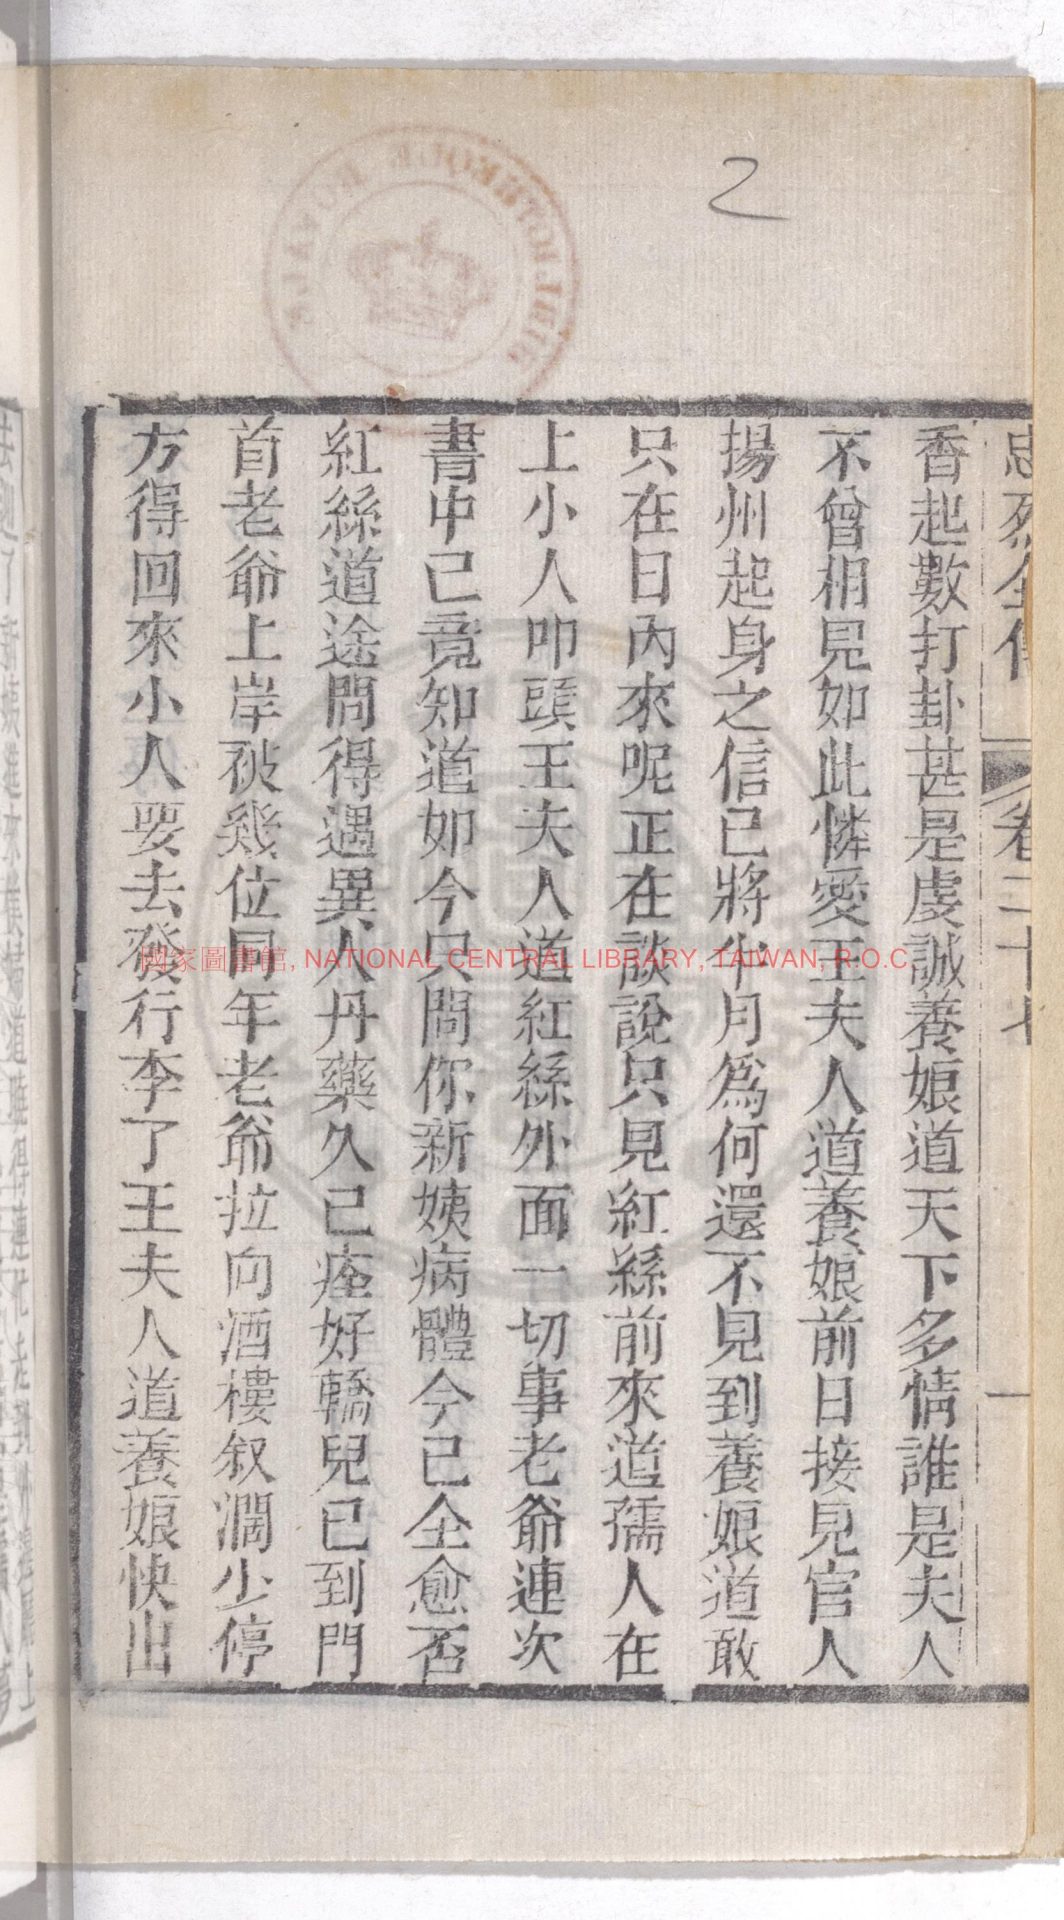 忠烈全傳 卷二十七 一
香起數打卦甚是虔誠養娘道天下多情誰是夫人
不曾相見如此憐愛王夫人道養娘前日接見官人
揚州起身之信已將半月爲何還不見到養娘道敢
只在日內來呢正在談說只見紅絲前來道孺人在
上小人叩頭王夫人道紅絲外面一切事老爺連次
書中已竟知道如今只問你新姨病體今已全愈否
紅絲道途間得遇異人丹藥久已痊好轎兒已到門
首老爺上岸被幾位同年老爺拉向酒樓叙濶少停
方得回來小人要去發行李了王夫人道養娘快出
2
BIBLIOTHEQUE ROYALE
國家圖書館, NATIONAL CENTRAL LIBRARY, TAIWAN, R.O.C.